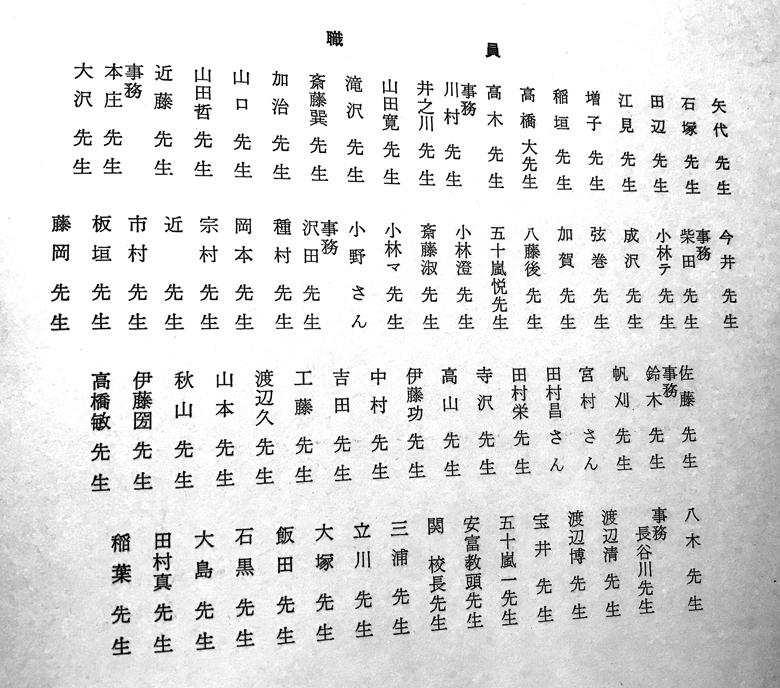 職 員
矢代 先生
石塚 先生
田辺 先生
江見 先生
増子 先生
稲垣 先生
高橋大先生
高木 先生
事務
川村 先生
井之川 先生
山田寛 先生
滝沢 先生
斎藤巽 先生
加治 先生
山口 先生
山田哲 先生
近藤 先生
事務
本庄 先生
大沢 先生
今井 先生
事務
柴田 先生
小林テ 先生
成沢 先生
弦巻 先生
加賀 先生
八藤後 先生
五十嵐悦先生
小林澄 先生
斎藤淑 先生
小林マ 先生
小野 さん
事務
沢田 先生
種村 先生
岡本 先生
宗村 先生
近 先生
市村 先生
板垣 先生
藤岡 先生
佐藤 先生
事務
鈴木 先生
帆刈 先生
宮村 さん
田村昌 さん
田村栄 先生
寺沢 先生
高山 先生
伊藤功 先生
中村 先生
吉田 先生
工藤 先生
渡辺久 先生
山本 先生
秋山 先生
伊藤圀 先生
高橋敏 先生
八木 先生
事務
長谷川先生
渡辺清 先生
渡辺博 先生
宝井 先生
五十嵐一先生
安富教頭先生
関 校長先生
三浦 先生
立川 先生
大塚 先生
飯田 先生
石黒 先生
大島 先生
田村真 先生
稲葉 先生